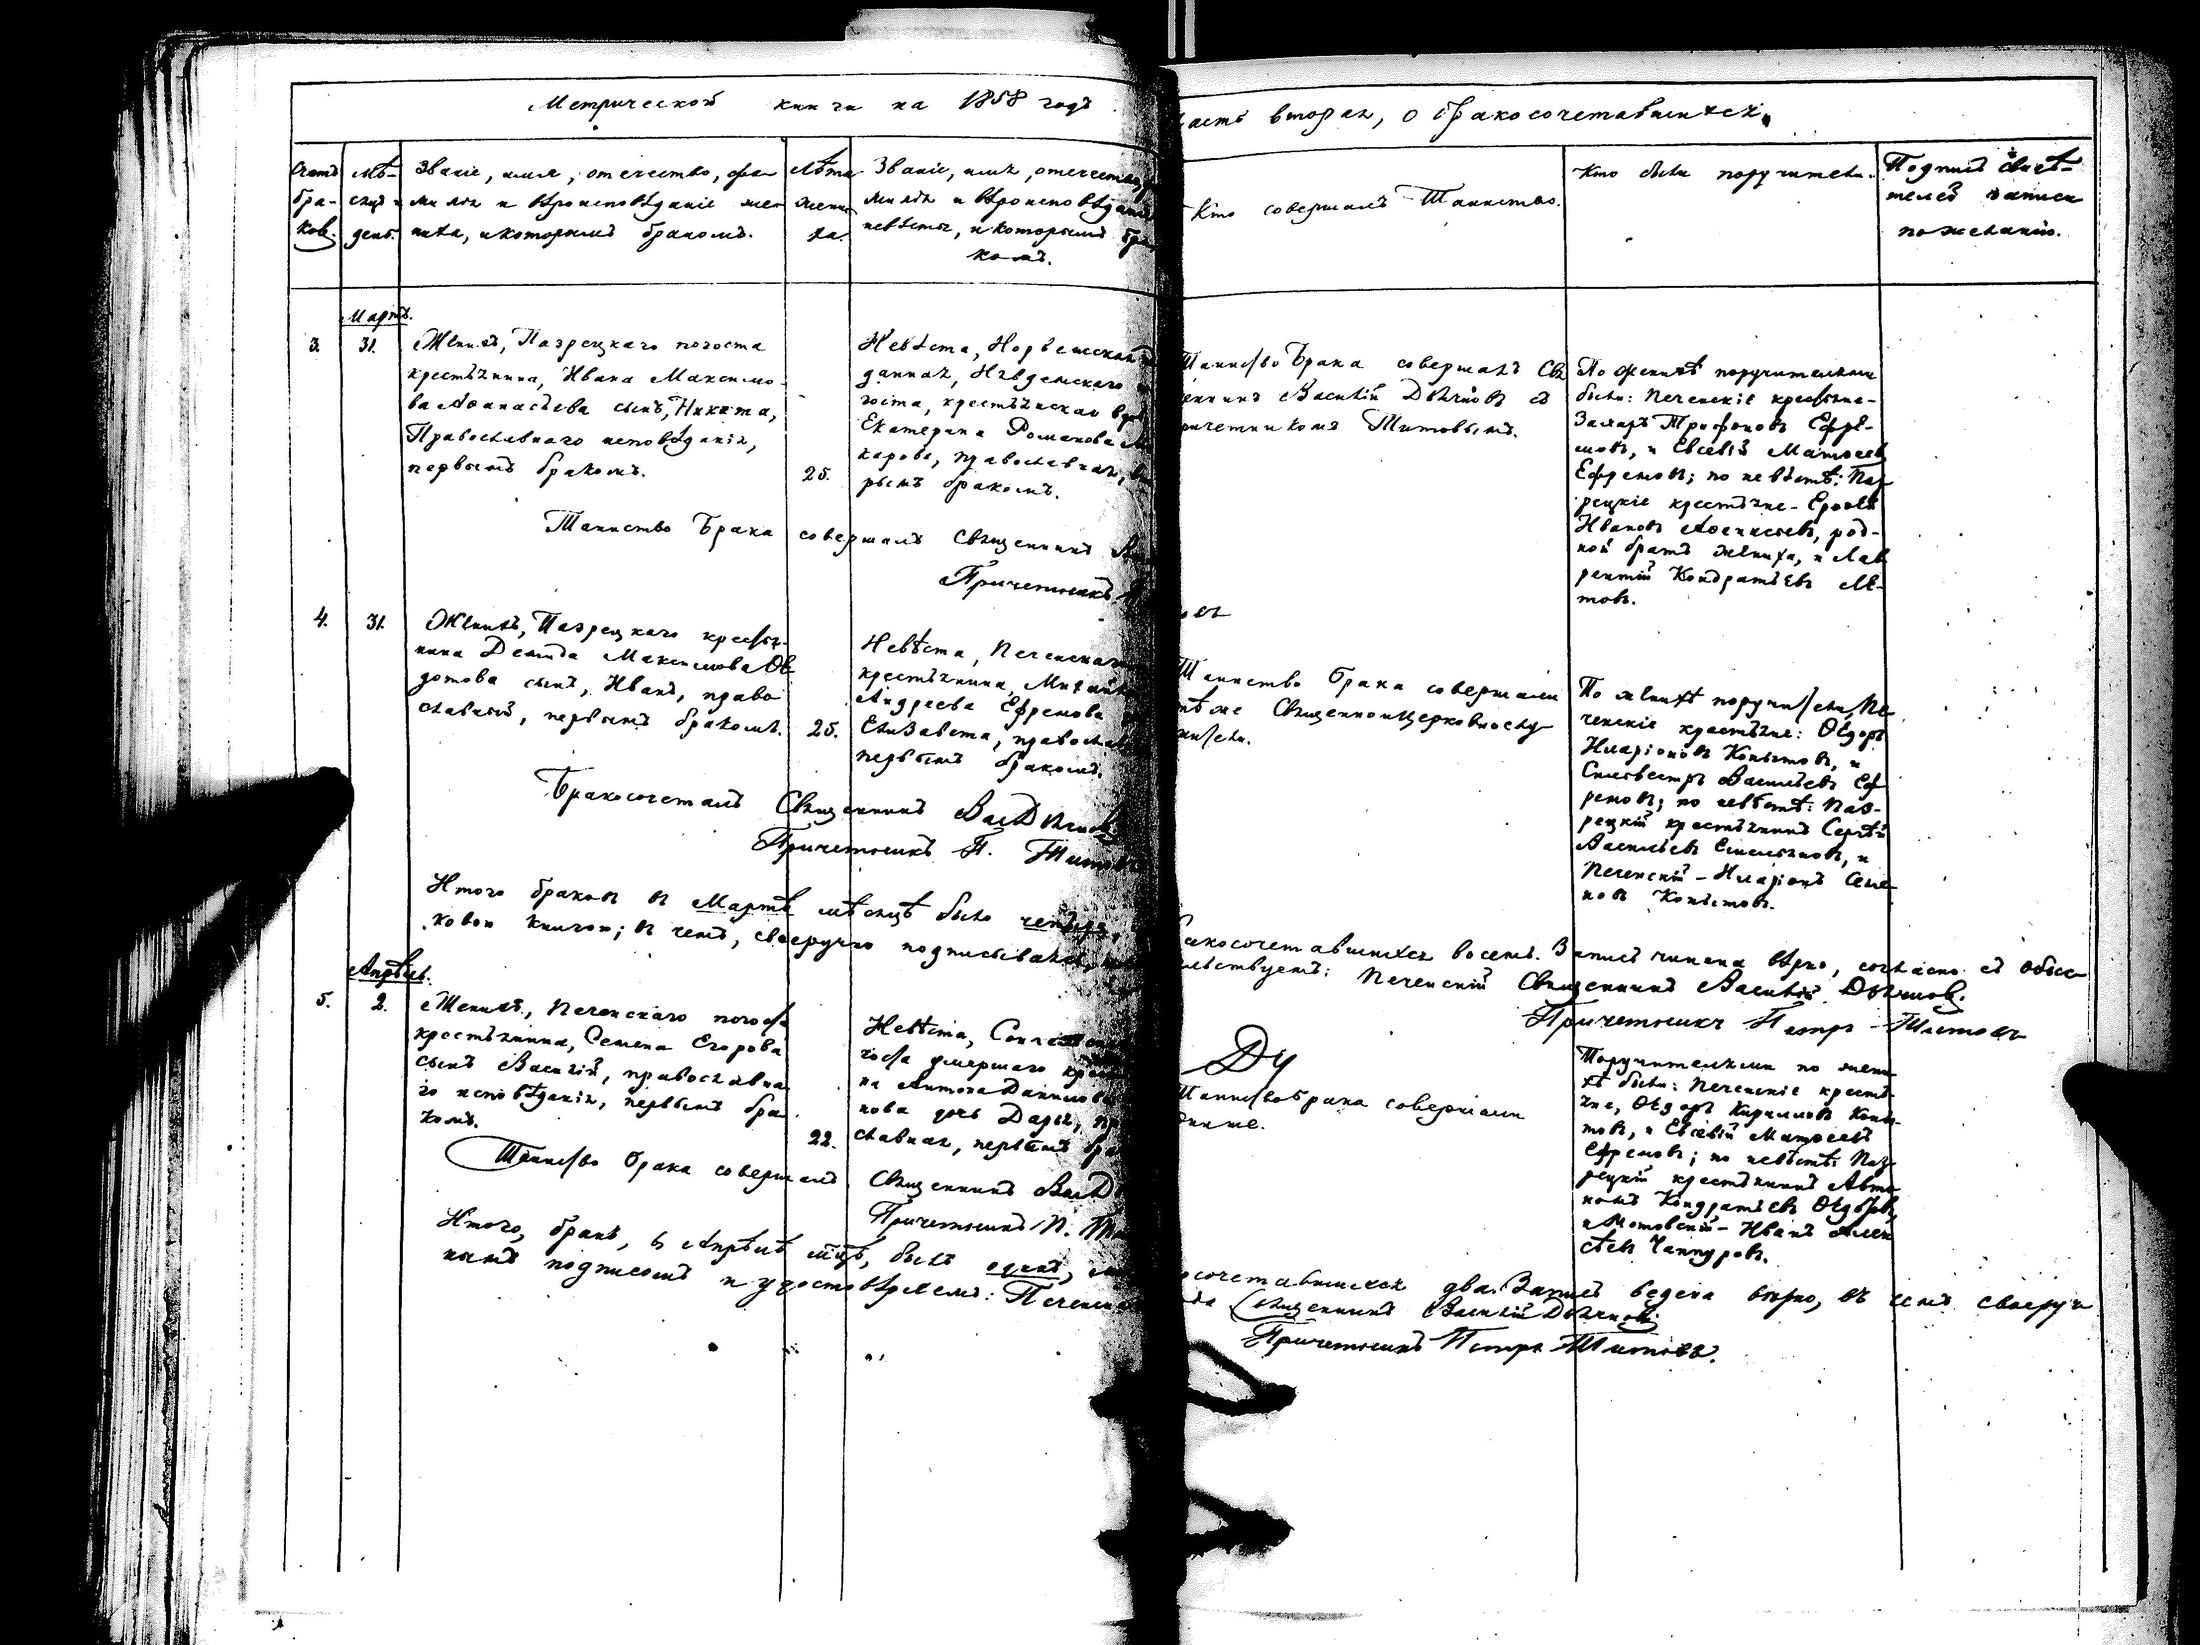 Метрической книги на 1858 годъ
часть вторая, о бракосочетавшихся.
Счетъ бра- ков.
Мѣ- сяцъ и день.
Званіе, имя, отечество, фа-
милія и вѣроисповѣданіе же-
ниха, и которымъ бракомъ.
Лѣта жени- ха.
Званіе, имя, отечество,
милія и вѣроисповѣданіе
невѣсты, и которымъ бра-
комъ.
Кто совершалъ Таинство.
Кто были поручители.
Подпись свидѣ-
телей записи
по желанію.
Мартъ.
3.
31.
Женихъ, Пазрецкаго погоста
крестьянина, Ивана Максимо-
ва Аѳанасьева сынъ, Никита,
Православнаго исповѣданія,
первымъ бракомъ.
25.
Невѣста, Норвежская
данная, Нявдемскаго
госта, крестьянская
Екатерина Романова
карова, православная,
рымъ бракомъ.
Таинство Брака совершалъ Свя
щенникъ Василій Двѣчновъ съ
ричетникомъ Титовымъ.
По женихѣ поручителями
были: Печенскіе крестьяне-
Захаръ Трифоновъ Ефре-
мовъ, и Евсевій Матѳеевъ
Ефремовъ; по невѣстѣ: Паз-
рецкіе крестьяне-
Ивановъ Аѳанасьевъ, род-
ной братъ жениха, и Лав
рентій Кондратьевъ Ле-
товъ.
Таинство Брака совершалъ Священникъ
Причетникъ
4.
31.
Женихъ, Пазрецкаго крестья-
нина Демида Максимова Ѳе
дотова сынъ, Иванъ, право
славный, первымъ бракомъ.
25.
Невѣста, Печенскаго
крестьянина, Михаила
Андреева Ефремова
Елизавета, православ
первымъ бракомъ.
Таинство брака совершали
тѣ же Священноицерковнослу
жители.
По женихѣ поручители, Пе-
ченскіе крестьяне: Ѳедоръ
Иларіоновъ Копытовъ, и
Сильвестръ Васильевъ Еф
ремовъ; по невѣстѣ: Паз-
рецкій крестьянинъ Сергѣй
Васильевъ и
Печенскій - Иларіонъ Семе
новъ Копытовъ.
Бракосочеталъ Священникъ
Причетникъ П. Титовъ
Итого браковъ въ Мартѣ мѣсяцѣ было четыре,
ковою книгою; въ чемъ, своеручно подписываясь,
ракосочетавшихся восемь. Запись чинена вѣрно, согласно съ обыс-
льствуемъ: Печенскій Священникъ Василій
Причетникъ Петръ Титовъ
Апрѣль.
5.
2.
Женихъ, Печенскаго погоста
крестьянина, Семена Егорова
сынъ Василій, православна
го исповѣданія, первымъ бра-
комъ.
22.
Невѣста,
госта умершаго
на Антона Данилова
нова дочь Дарья,
славная, первымъ бра
Таинство брака совершали
они же.
Поручителями по жени-
хѣ были: Печенскіе кресть-
яне, Ѳедоръ Кирилловъ Копы-
товъ, и Евсевій Матѳеевъ
Ефремовъ; по невѣстѣ: Паз-
рецкій крестьянинъ Авто-
номъ Кондратьевъ
и Мотовскій - Иванъ Алек
сѣевъ Чаппуровъ.
Таинство брака совершалъ Священникъ
Причетникъ П.
Итого, бракъ, въ Апрѣлѣ мцѣ, былъ одинъ,
нымъ подписомъ и удостовѣряемъ: Печенска
сочетавшихся два. Запись ведена вѣрно, въ чемъ своеруч
Священникъ Василій
Причетникъ Петръ Титовъ.